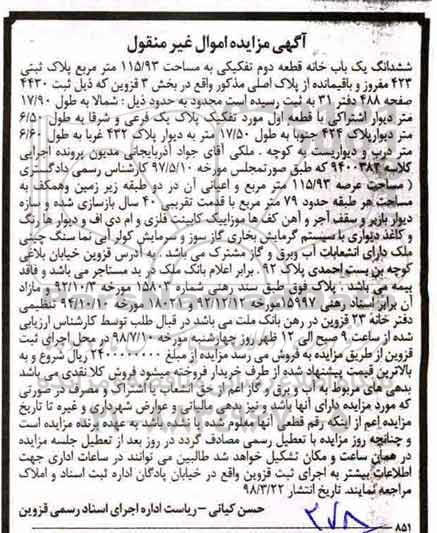 آگهی مزایده اموال غیر منقول
ششدانگ یک باب خانه قطعه دوم تفکیکی به مساحت ۱۱۵/۹۳ متر مربع پلاک ثبتی
۴۲۳ مفروز و باقیمانده از پلاک اصلی مذکور واقع در بخش ۳ قزوین که ذیل ثبت ۴۴۳۰
صفحه ۴۸۸ دفتر ۳۱ به ثبت رسیده است محدود به حدود ذیل : شمالا به طول ۱۷/۹۰
متر دیوار اشتراکی با قطعه اول مورد تفکیک پلاک یک فرعی و شرقا به طول ۶/۵۰
متر دیوارپلاک ۴۲۴ جنوبا به طول ۱۷/۵۰ متر به دیوار پلاک ۴۳۲ غربا به طول ۶/۶۰
متر درب و دیواریست به کوچه . ملکی آقای جواد آذربایجانی مدیون پرونده اجرایی
کلاسه ۹۴۰۰۳۸۲ که طبق صورتمجلس مورخه ۹۷/۵/۱۰ کارشناس رسمی دادگستری
( مساحت عرصه ۱۱۵/۹۳ متر مربع و اعیانی آن در دو طبقه زیر زمین وهمکف به
مساحت هر طبقه حدود ۷۹ متر مربع با قدمت تقریبی ۴۰ سال بازسازی شده و سازه
دیوار باربر و سقف آجر و آهن کف ها موزاییک کابینت فلزی و ام دی اف و دیوار ها رنگ
و کاغذ دیواری با سیستم گرمایش بخاری گاز سوز و سرمایش کولر آبی نما سنگ چینی
ملک دارای انشعابات آب وبرق و گاز مشترک می باشد . به آدرس قزوین خیابان بلاغی
کوچه بن بست احمدی پلاک ۹۲ . برابر اعلام بانک ملک در ید مستاجر می باشد و فاقد
بیمه می باشد . پلاک فوق طبق سند رهنی شماره ۱۵۸۰۳ مورخه ۹۲/۱۰/۳ و مازاد
آن برابر اسناد رهنی ۱۵۹۹۷مورخه ۹۲/۱۲/۱۲ و ۱۸۰۲۱ مورخه ۹۴/۱۰/۱ تنظیمی
دفتر خانه ۲۳ قزوین در رهن بانک ملت می باشد در قبال طلب توسط کارشناس ارزیابی
شده از ساعت ۹ صبح الی ۱۲ ظهر روز چهارشنبه مورخه ۹۸/۷/۱۰ در محل اجرای ثبت
قزوین از طریق مزایده به فروش می رسد مزایده از مبلغ ۲۴۰۰۰۰۰۰۰۰ ریال شروع و به
بالاترین قیمت پیشنهاد شده از طرف خریدار فروخته میشود فروش کلا نقدی می باشد
بدهی های مربوط به آب و برق و گاز اعم از حق انشعاب یا اشتراک و مصرف در صورتی
که مورد مزایده دارای آنها باشد و نیز بدهی مالیاتی و عوارض شهرداری و غیره تا تاریخ
مزایده اعم از اینکه رقم قطعی آنها معلوم شده یا نشده باشد به عهده برنده مزایده است
و چنانچه روز مزایده با تعطیل رسمی مصادف گردد در روز بعد از تعطیل جلسه مزایده
در همان ساعت و مکان تشکیل خواهد شد طالبین می توانند در ساعات اداری جهت
اطلاعات بیشتر به اجرای ثبت قزوین واقع در خیابان پادگان اداره ثبت اسناد و املاک
مراجعه نمایند. تاریخ انتشار ۹۸/۳/۲۲
حسن کیانی – ریاست اداره اجرای اسناد رسمی قزوین
۸۵۱